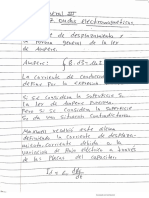 General III
7 Ondas electromagnéticas
Corriente de desplazamiento y la
forma general de la ley
de Ampère
Ampère: ∮ B · ds = μ₀ I
La corriente de conducción
define para la
corriente
Si se considera la superficie S₁
la ley de Ampère funciona
Pero si se considera S₂ se da
una situación contradictoria
Maxwell resolvió este dilema
definiendo la corriente de despla-
zamiento. Corriente debida a la
variación de flujo eléctrico a través
de las placas del capacitor
Id = ε₀ dΦE/dt